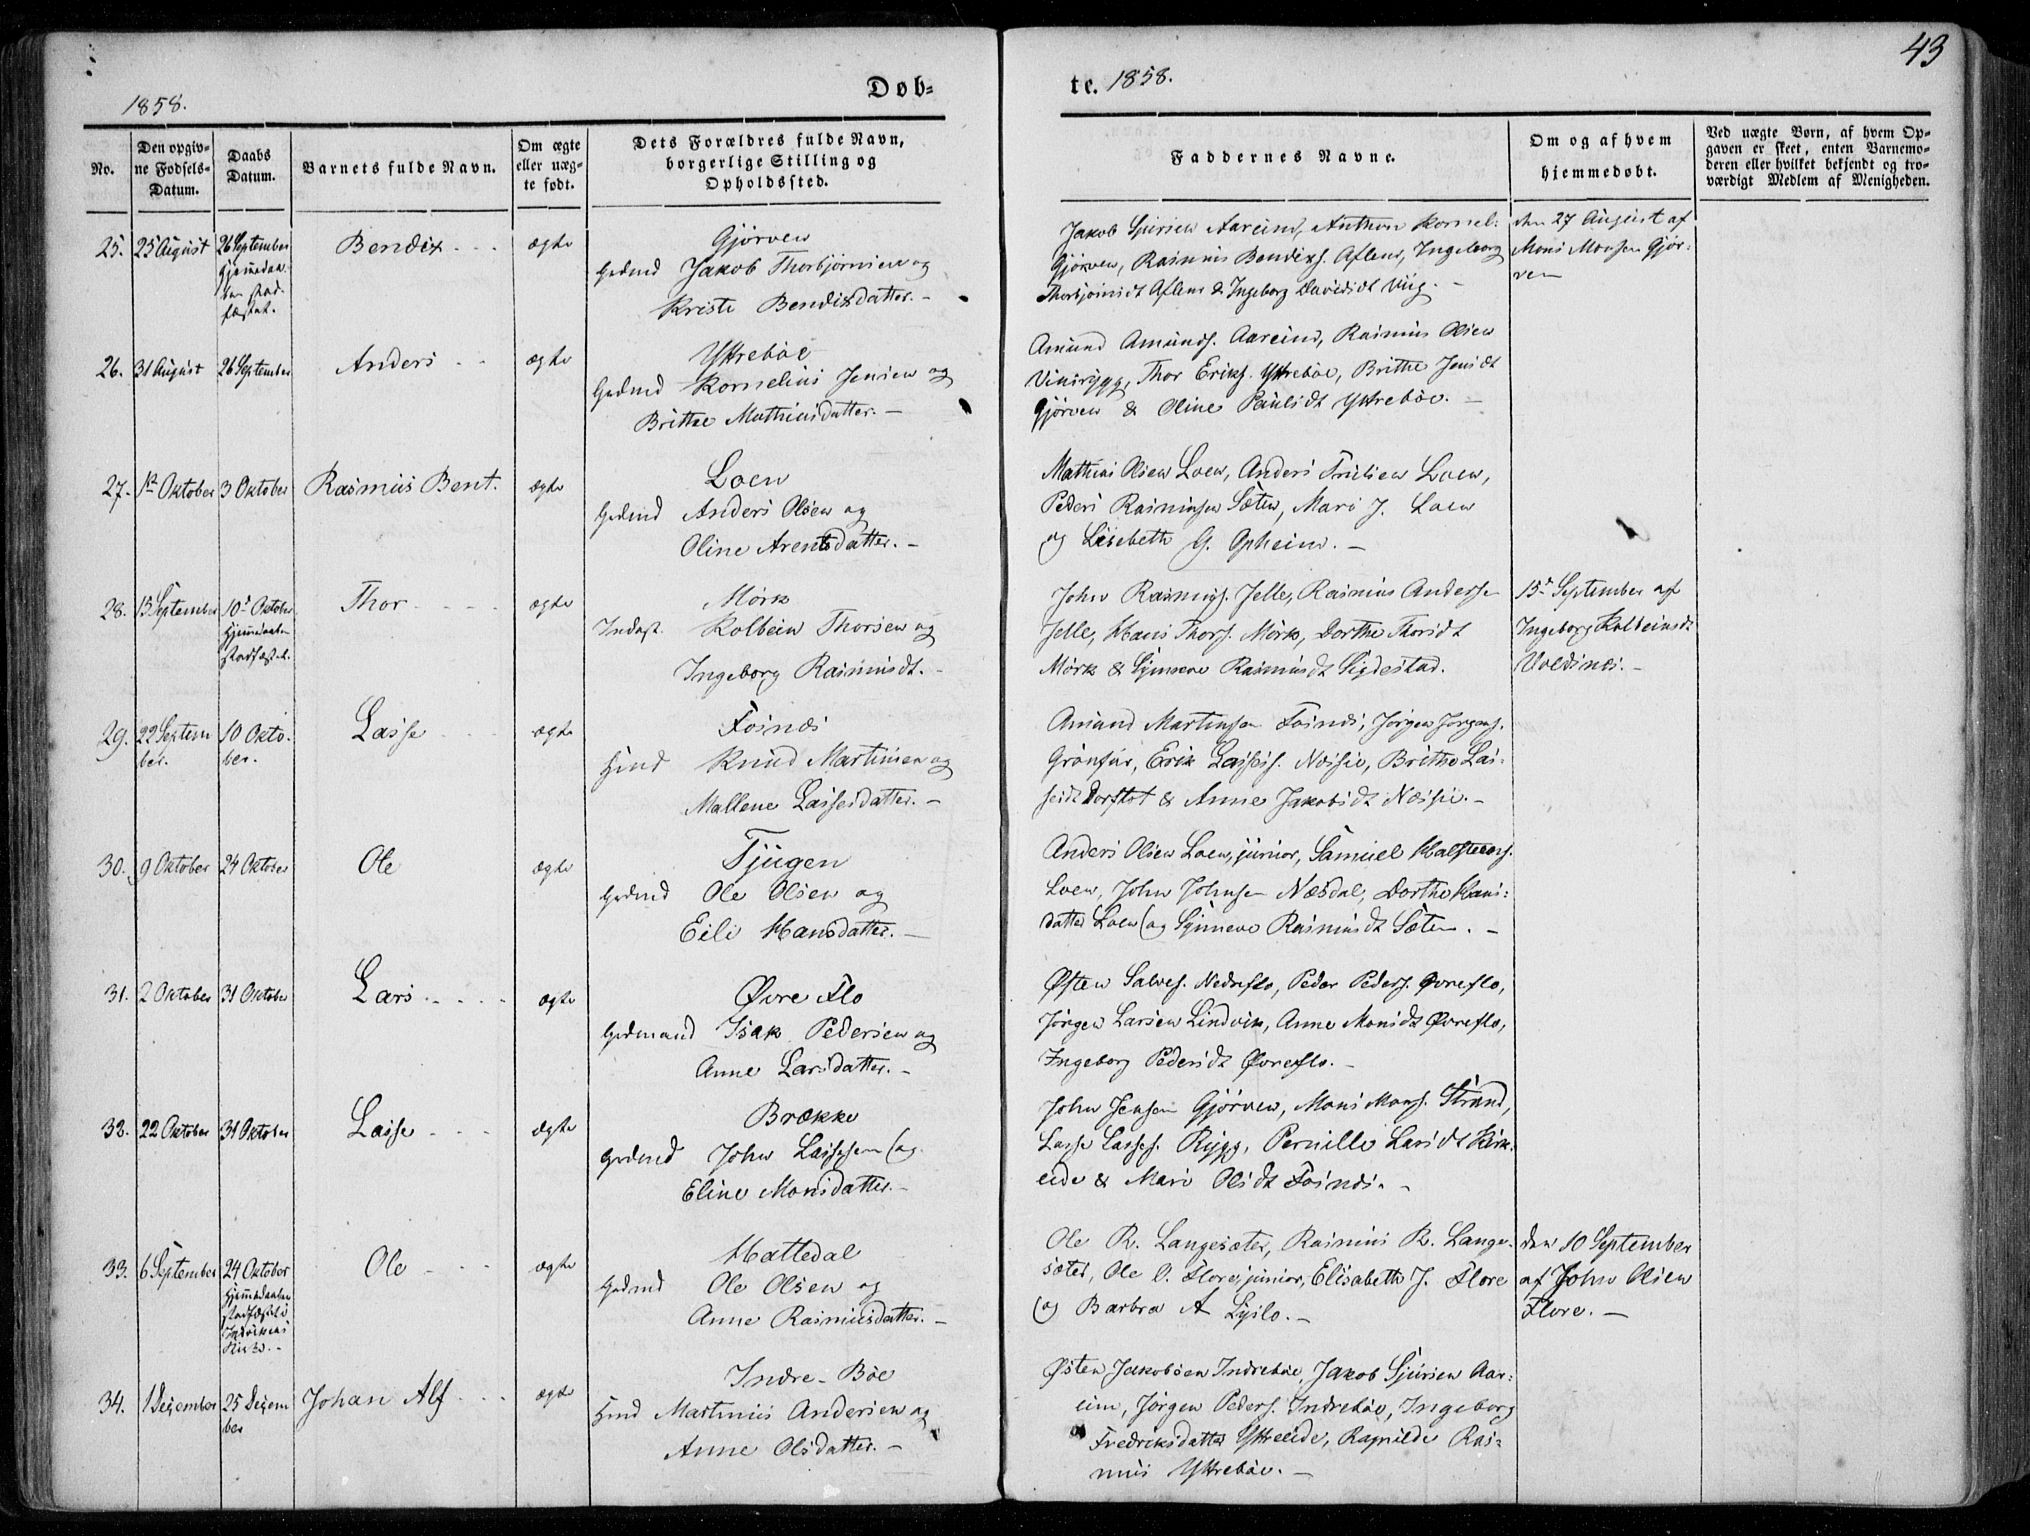 43
1858.
Døb-
te. 1858.
No.
Den opgiv-
ne Fødsels-
Datum.
Daabs
Datum.
Barnets fulde Navn.
Om ægte
eller uæg-
te født.
Dets Forældres fulde Navn,
borgerlige Stilling og
Opholdssted.
Faddernes Navne.
Om og af hvem
hjemmedøbt.
Ved uægte Børn, af hvem Op-
gaven er skeet, enten Barnemo-
deren eller hvilket bekjendt og tro-
værdigt Medlem af Menigheden.
25. 25 August
26 September
Hjemmedaa-
ben stad-
fæstet.
Bendix
ægte
Gjørven
Gdmd Jakob Thorbjørnsen og
Kristi Bendixdatter.
Jakob Sjursen Aareim, Anthon Kornel:
Gjørven, Rasmus Bendixs. Aflem, Ingeborg
Thorbjørnsdt Aflem & Ingeborg Davidsdt Viig.
den 27 August af
Mons Monsen Gjør-
ven
26. 31 August
26 September
Anders
ægte
Yttrebøe
Gdmd Kornelius Jensen og
Brithe Mathiasdatter.
Amund Amunds. Aareim, Rasmus Olsen
Vinsrygg, Thor Eriks. Yttrebøe, Brithe Jensdt
Gjørven & Oline Paulsdt Yttrebøe.
27. 1st Oktober
3 Oktober
Rasmus Bent.
ægte
Loen
Gdmd Anders Olsen og
Oline Arentsdatter.
Mathias Olsen Loen, Anders Trulsen Loen,
Peder Rasmussen Sæten, Mari J. Loen
og Lisebeth G. Opheim.
28. 15 September
10de Oktober
Hjemmedaaben
stadfæstet.
Thor
ægte
Mørk
Indst. Kolbein Thorsen og
Ingeborg Rasmusdt.
John Rasmuss. Jelle, Rasmus Anderssen
Jelle, Hans Thors. Mørk, Dorthe Thorsdt
Mørk & Synneve Rasmusdt Sigdestad.
15de September af
Ingeborg Kolbeinsdt
Voldsnes.
29. 22 Septem
ber.
10 Okto-
ber.
Lasse
ægte
Fosnæs
Hmd Knud Martinsen og
Mallene Lassesdatter.
Amund Martinsen Fosnæs, Jørgen Jørgens.
Grønfur, Erik Lasses. Nøssie, Brithe Las-
sesdt Dorflot & Anne Jakobsdt Nøssie.
30. 9 Oktober
24 Oktober
Ole
ægte
Tjugen
Gdmd Ole Olsen og
Eili Hansdatter.
Anders Olsen Loen, junior, Samuel Halsteens.
Loen, John Johnsen Næsdal, Dorthe Hans-
datter Loen og Synneve Rasmusdt Sæten.
31. 2 Oktober
31 Oktober
Lars
ægte
Øvre Flo
Gdmand Isak Pedersen og
Anne Larsdatter.
Østen Salves. Nedreflo, Peder Peders. Øvreflo,
Jørgen Larsen Lindvik, Anne Monsdt Øvreflo,
Ingeborg Pedersdt Øvreflo.
32. 22 Oktober
31 Oktober
Lasse
ægte
Brække
Gdmd John Lassesen og
Eline Monsdatter.
John Jensen Gjørven, Mons Mons. Strand,
Lasse Lasses. Rygg, Pernille Larsdt Kirk-
eide & Mari Olsdt Fosnæs.
33. 6 September
24 Oktober
Hjemmedaaben
stadfæstet i
Indvikens
Kirke.
Ole
ægte
Hattedal
Gdmd Ole Olsen og
Anne Rasmusdatter.
Ole R. Langesæter, Rasmus R. Lange-
sæter, Ole O. Flore, junior, Elisabeth J. Flore
og Barbra A Lyslo.
den 10 September
af John Olsen
Flore.
34. 1 Dezember
25 Dezem
ber
Johan Alf
ægte
Indre-Bøe
Hmd Martinus Andersen og
Anne Olsdatter.
Østen Jakobsen Indrebøe, Jakob Sjursen Aar-
eim, Jørgen Peders. Indrebøe, Ingeborg
Fredriksdatter Yttreeide, Ragnilde Ras-
mus Yttrebøe.